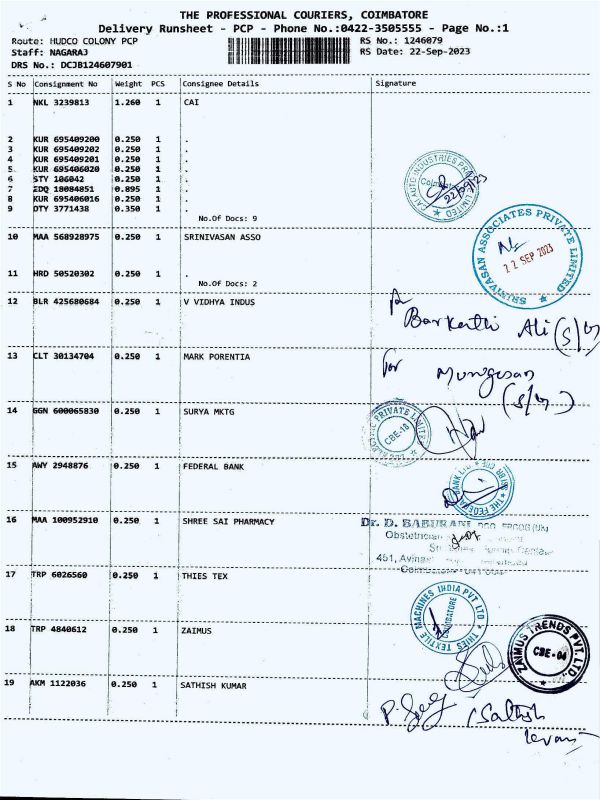 THE PROFESSIONAL COURIERS, COIMBATORE
Delivery Runsheet - PCP - Phone No.:0422-3505555 - Page No.:1
Route: HUDCO COLONY PCP RS No.: 1246079
Staff: NAGARAJ RS Date: 22-Sep-2023
DRS No.: DCJB124607901
S No Consignment No Weight PCS Consignee Details Signature
1 NKL 3239813 1.260 1 CAI
2 KUR 695409200 0.250 1 .
3 KUR 695409202 0.250 1 .
4 KUR 695409201 0.250 1 .
5 KUR 695406020 0.250 1 .
6 STY 106042 0.250 1 .
7 EDQ 18084851 0.895 1 .
8 KUR 695406016 0.250 1 .
9 DTY 3771438 0.350 1 .
No.Of Docs: 9
CAI AUTO INDUSTRIES PRIVATE LIMITED
22/09/23
10 MAA 568928975 0.250 1 SRINIVASAN ASSO
SRINIVASAN ASSOCIATES PRIVATE LIMITED
22 SEP 2023
11 HRD 50520302 0.250 1 .
No.Of Docs: 2
12 BLR 425680684 0.250 1 V VIDHYA INDUS
Ali
13 CLT 30134704 0.250 1 MARK PORENTIA
for
14 GGN 600065830 0.250 1 SURYA MKTG
PRIVATE LIMITED
CBE-18
15 AWY 2948876 0.250 1 FEDERAL BANK
THE FEDERAL BANK LTD
16 MAA 100952910 0.250 1 SHREE SAI PHARMACY
Dr. D. BABURANI
Obstetrician
451, Avinas
17 TRP 6026560 0.250 1 THIES TEX
THIES TEXTILE MACHINES INDIA PVT LTD
COIMBATORE
18 TRP 4840612 0.250 1 ZAIMUS
ZAIMUS TRENDS PVT. LTD.
CBE-04
19 AKM 1122036 0.250 1 SATHISH KUMAR
Sathish